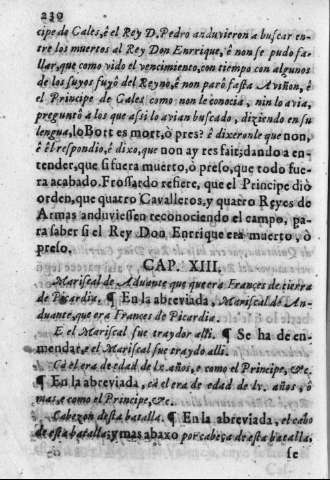 230
cipe de Gales, é el Rey D. Pedro anduvieron a buscar en-
tre los muertos al Rey Don Enrrique, é non se pudo fa-
llar, que como vido el vencimiento, con tiempo con algunos
de los suyos fuyó del Reyno, é non paró fasta Aviñon, é
el Principe de Gales como non le conocia, nin lo avia,
preguntó a los que assi lo avian buscado, diziendo en su
lengua, lo Bort es mort, ò pres? é dixeronle que non,
é él respondio, é dixo, que non ay res fait; dando a en-
tender, que si fuera muerto, ò preso, que todo fue-
ra acabado. Frossardo refiere, que el Principe diò
orden, que quatro Cavalleros, y quatro Reyes de
Armas anduviessen reconociendo el campo, pa-
ra saber si el Rey Don Enrrique era muerto, ò
preso.
CAP. XIII.
Mariscal de Aduante que que era Frances de tierra
de Picardia. ¶ En la abreviada, Mariscal de An-
duante, que era Frances de Picardia.
E el Mariscal fue traydor alli. ¶ Se ha de en-
mendar, e el Mariscal fue traydo alli.
Cà el era de edad de lx. años, e como el Principe, &c.
¶ En la abreviada, cà el era de edad de lv. años, ò
mas, e como el Principe, &c.
Cabezon desta batalla. ¶ En la abreviada, el cabo
de esta batalla; y mas abaxo por cabeça de esta batalla,
se